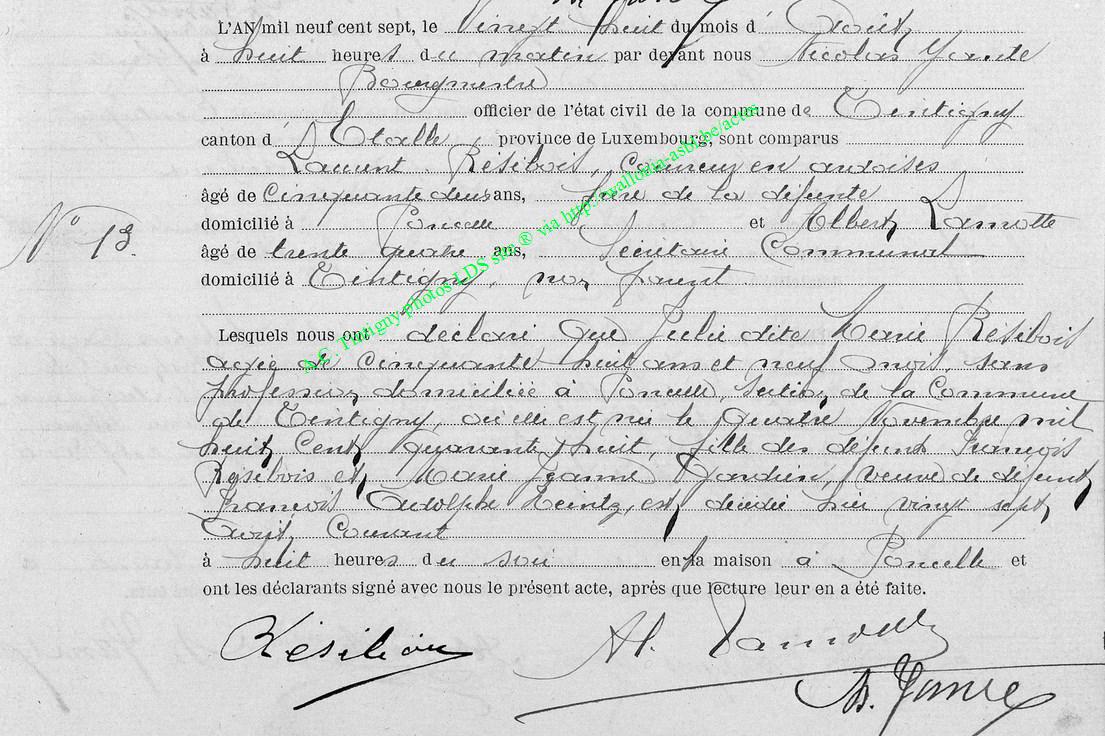 L'AN mil neuf cent sept, le Vingt huit du mois d' Août
à huit heures du matin par devant nous Nicolas
Bourgmestre
officier de l'état civil de la commune de Tintigny
canton d' Etalle province de Luxembourg, sont comparus
Laurent Résibois, Couvreur en ardoises
âgé de Cinquante deux ans, frère de la défunte
domicilié à Poncelle et Albert Lamotte
N° 13.
âgé de trente quatre ans, Secrétaire Communal
domicilié à Tintigny, non parent
Lesquels nous ont déclaré que Julie dite Marie Résibois
agée de Cinquante huit ans et neuf mois, sans
profession, domiciliée à Poncelle, section de la Commune
de Tintigny, où elle est née le quatre Novembre mil
huit Cent quarante huit, fille des défunts François
Résibois et Marie Jeanne veuve de défunt
François Adolphe est décédée hier vingt sept
Août Courant
à huit heures du soir en la maison à Poncelle et
ont les déclarants signé avec nous le présent acte, après que lecture leur en a été faite.
Résibois Al. Lamotte
A.C. Tintigny photos LDS site ® via http://wallonia-asbl.be/actes